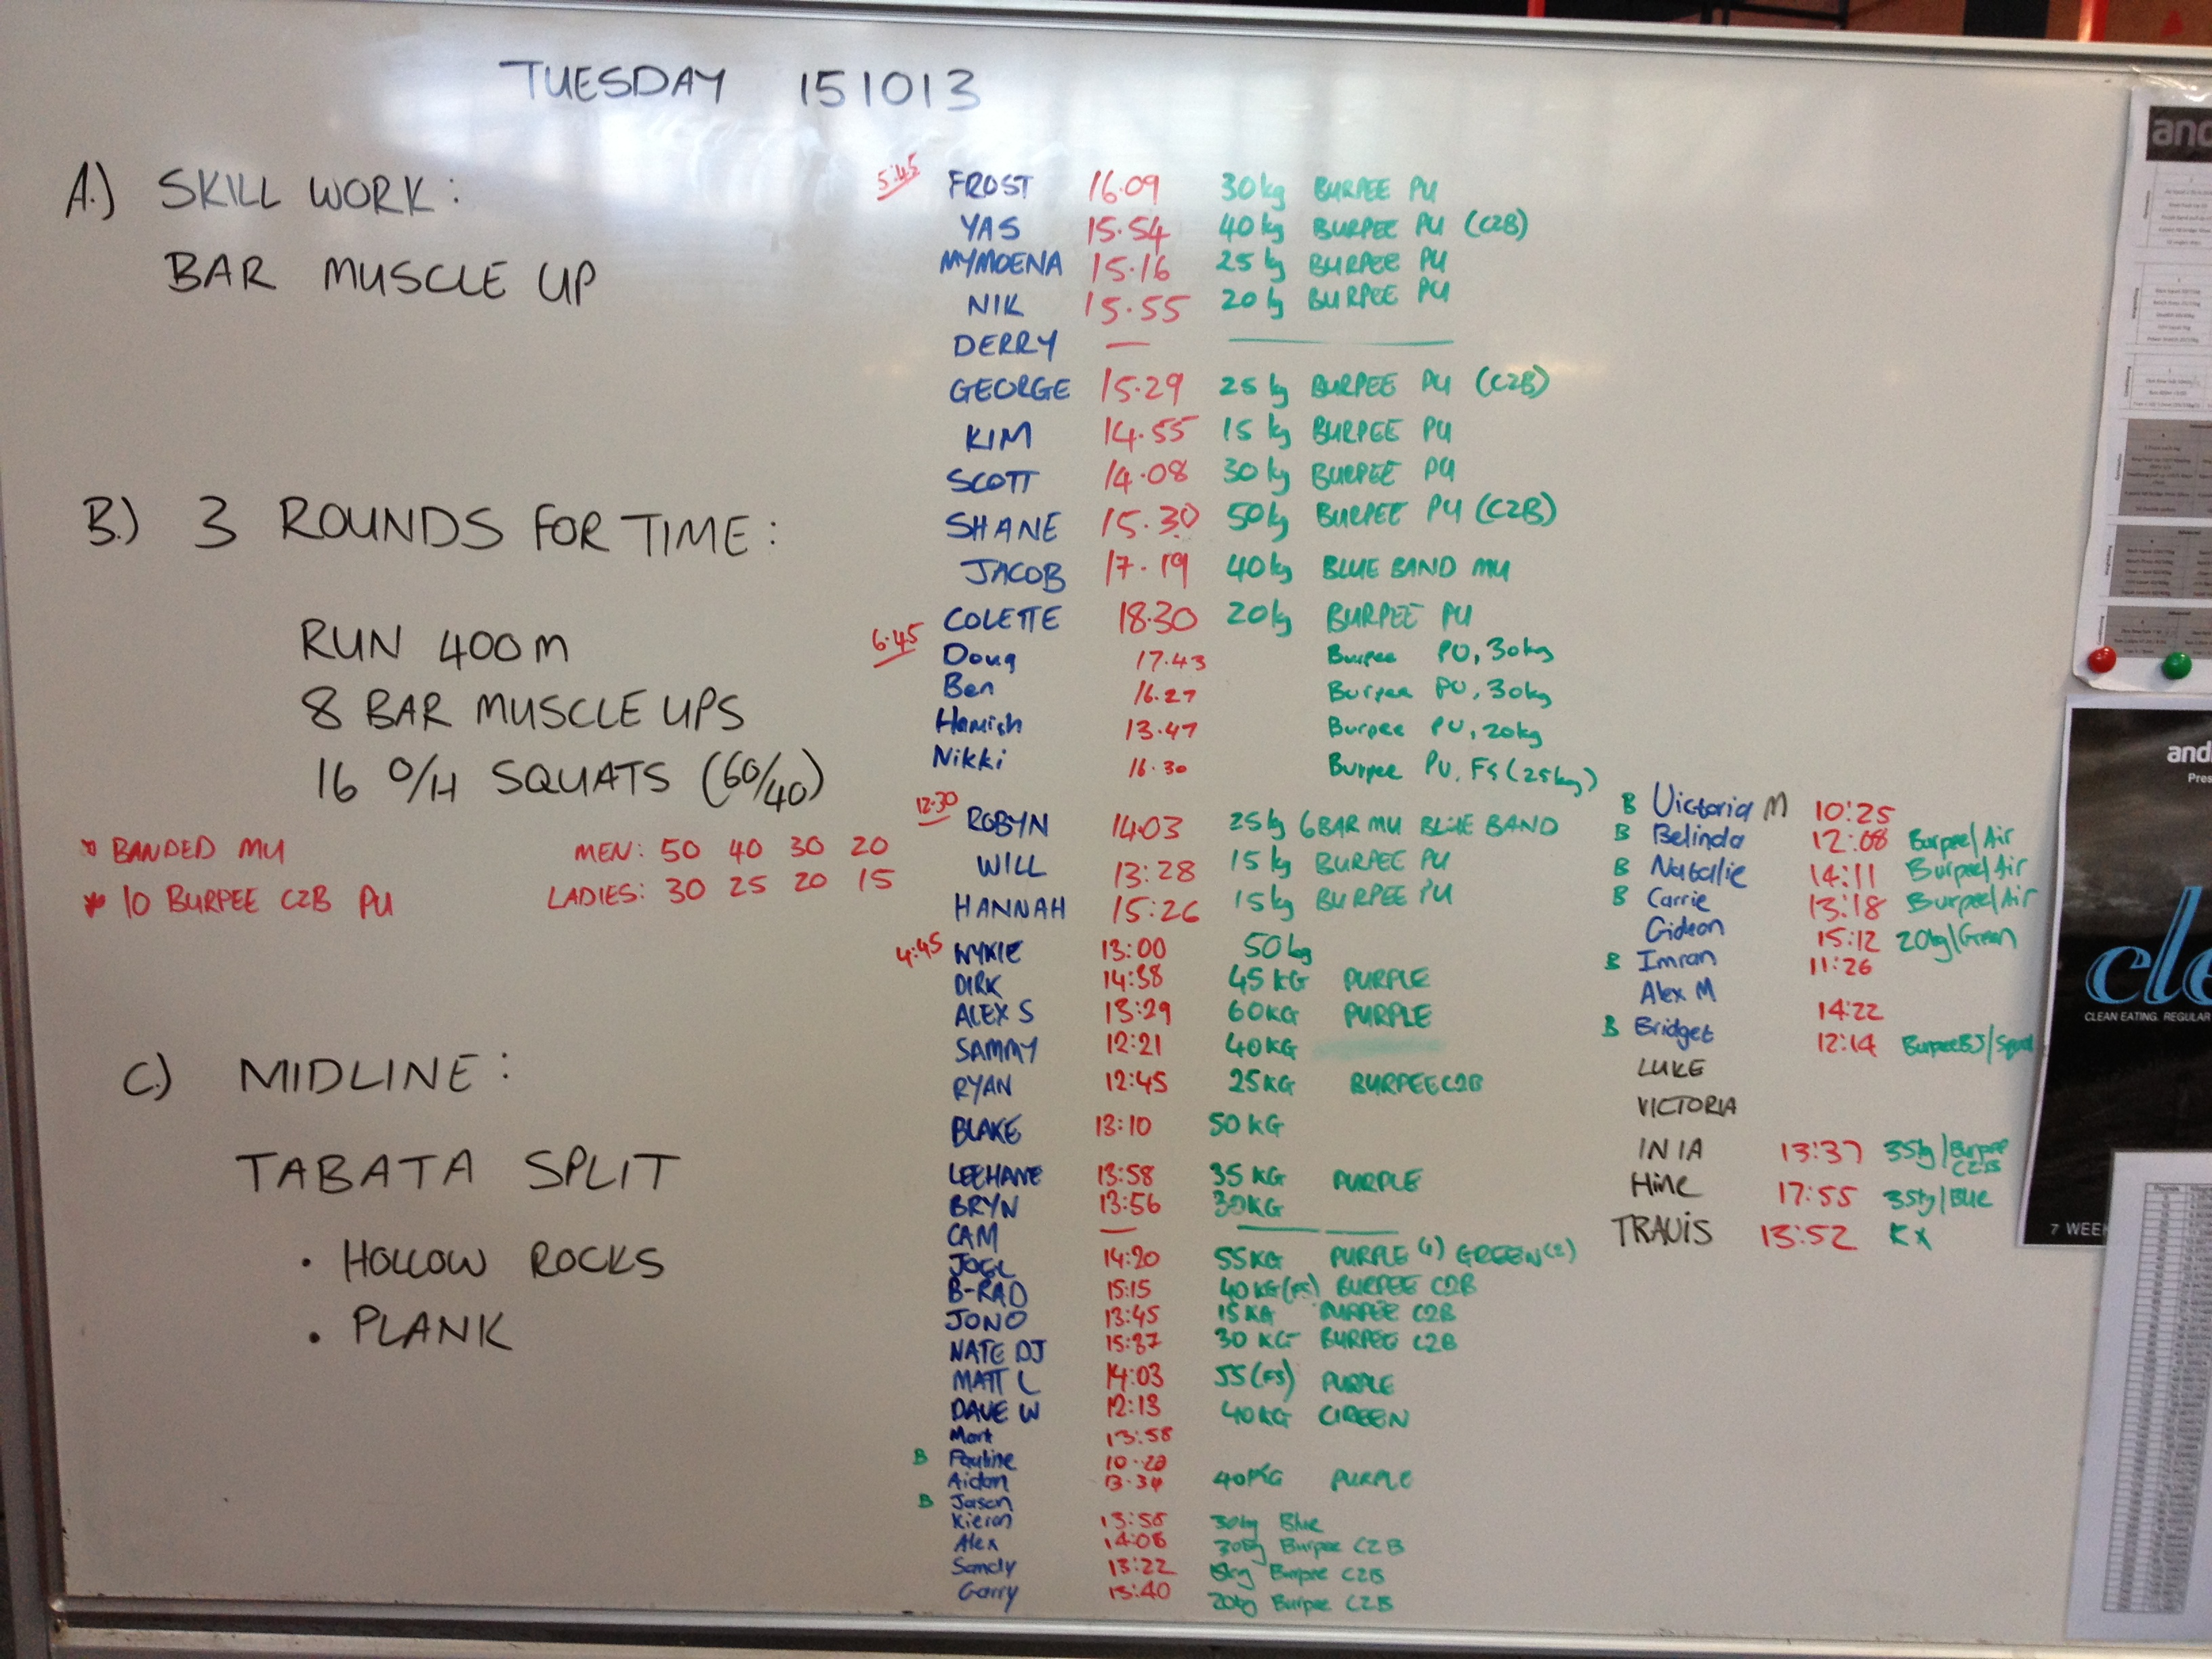 TUESDAY 151013
A.) SKILL WORK:
BAR MUSCLE UP
B.) 3 ROUNDS FOR TIME:
RUN 400m
8 BAR MUSCLE UPS
16 O/H SQUATS (60/40)
* BANDED MU
* 10 BURPEE C2B PU
MEN: 50 40 30 20
LADIES: 30 25 20 15
C.) MIDLINE:
TABATA SPLIT
• HOLLOW ROCKS
• PLANK
5:45 FROST 16.09 30kg BURPEE PU
YAS 15.54 40kg BURPEE PU (C2B)
MYMOENA 15.16 25kg BURPEE PU
NIK 15.55 20kg BURPEE PU
DERRY —
GEORGE 15.29 25kg BURPEE PU (C2B)
KIM 14.55 15kg BURPEE PU
SCOTT 14.08 30kg BURPEE PU
SHANE 15.30 50kg BURPEE PU (C2B)
JACOB 17.19 40kg BLUE BAND MU
COLETTE 18.30 20kg BURPEE PU
6.45 Doug 17.43 Burpee PU, 30kg
Ben 16.27 Burpee PU, 30kg
Hamish 13.47 Burpee PU, 20kg
Nikki 16.30 Burpee PU, FS (25kg)
12.30 ROBYN 14.03 25kg 6 BAR MU BLUE BAND
WILL 13:28 15kg BURPEE PU
HANNAH 15:26 15kg BURPEE PU
4:45 WYKIE 13:00 50kg
DIRK 14:38 45KG PURPLE
ALEX S 13:29 60KG PURPLE
SAMMY 12:21 40KG
RYAN 12:45 25KG BURPEE C2B
BLAKE 13:10 50KG
LEEHANE 13:58 35KG PURPLE
BRYN 13:56 30KG
CAM —
JOEL 14:20 55KG PURPLE (1) GREEN (2)
B-RAD 15:15 40KG (FS) BURPEE C2B
JONO 13:45 15KG BURPEE C2B
NATE DJ 15:37 30KG BURPEE C2B
MATT L 14:03 55 (FS) PURPLE
DAVE W 12:13 40KG GREEN
Mark 13:58
B Pauline 10:20
Aidan 13:34 40KG PURPLE
B Jason
Kieran 13:58 30kg Blue
Alex 14:08 30kg Burpee C2B
Sandy 13:22 15kg Burpee C2B
Garry 13:40 20kg Burpee C2B
B Victoria M 10:25
B Belinda 12:08 Burpee/Air
B Natalie 14:11 Burpee/Air
B Carrie 13:18 Burpee/Air
Gideon 15:12 20kg/Green
B Imran 11:26
Alex M 14:22
B Bridget 12:14 Burpee BJ/Squat
LUKE
VICTORIA
INIA 13:37 35kg/Burpee C2B
Hine 17:55 35kg/Blue
TRAVIS 13:52 RX
and
and
Pres
cle
CLEAN EATING. REGULAR
7 WEE